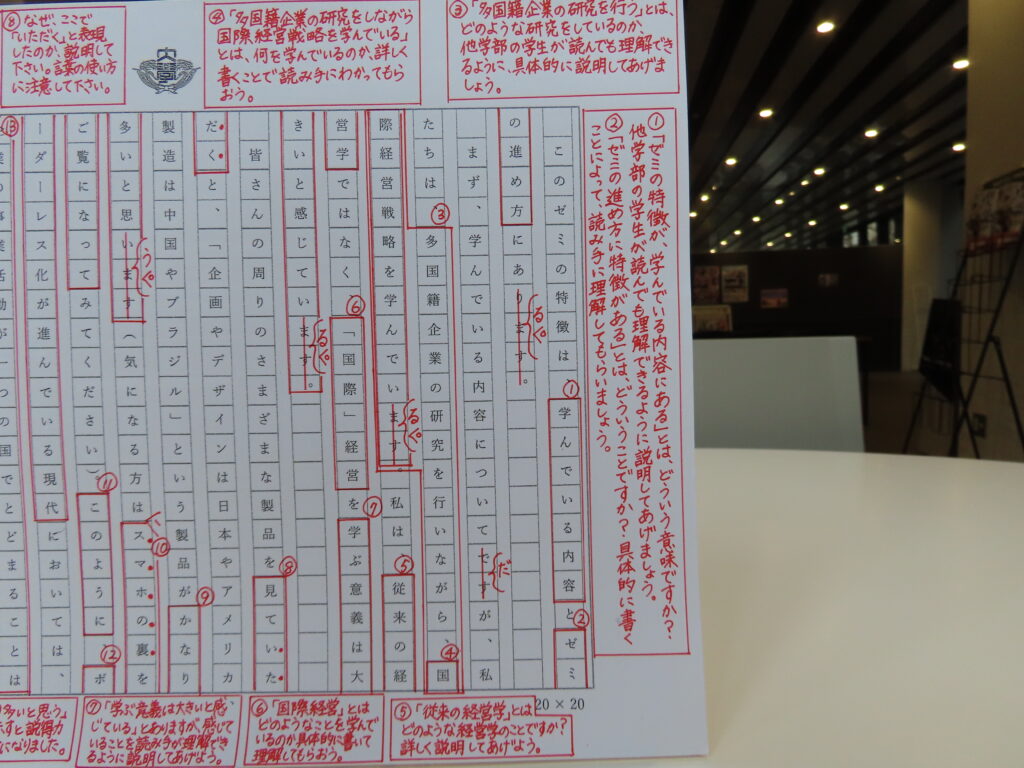 ③「多国籍企業の研究を行う」とは、
どのような研究をしているのか、
他学部の学生が読んでも理解でき
るように、具体的に説明してあげま
しょう。
④「多国籍企業の研究をしながら
国際経営戦略を学んでいる」
とは、何を学んでいるのか、詳しく
書くことで読み手にわかってもら
おう。
⑧なぜ、ここで
「いただく」と表現
したのか、説明して
下さい。言葉の使い方
に注意して下さい。
①「ゼミの特徴が、学んでいる内容にある」とは、どういう意味ですか?
他学部の学生が読んでも理解できるように説明してあげましょう。
②「ゼミの進め方に特徴がある」とは、どういうことですか?具体的に書く
ことによって、読み手に理解してもらいましょう。
このゼミの特徴は①学んでいる内容と②ゼミ
の進め方にあります。
るぐ
まず、学んでいる内容についてですが、私
だ
たちは③多国籍企業の研究を行いながら、④国
際経営戦略を学んでいます。私は⑤従来の経
るぐ
営学ではなく⑥「国際」経営を⑦学ぶ意義は大
きいと感じています。
るぐ
皆さんの周りのさまざまな製品を⑧見ていた
だくと、「企画やデザインは日本やアメリカ
製造は中国やブラジル」という製品が⑨かなり
多いと思います(気になる方は⑩スマホの裏を
うぐ
ご覧になってみてください)⑪このように⑫ボ
ーダーレス化が進んでいる現代においては、
⑬
の事業活動が一つの国でとどまることは
20×20
⑤「従来の経営学」とは
どのような経営学のことですか?
詳しく説明してあげよう。
⑥「国際経営」とは
どのようなことを学んで
いるのか具体的に書いて
理解してもらおう。
⑦「学ぶ意義は大きいと感
じている」とありますが、感じて
いることを読み手が理解でき
るように説明してあげよう。
多いと思う」
すと説得力
になりました。